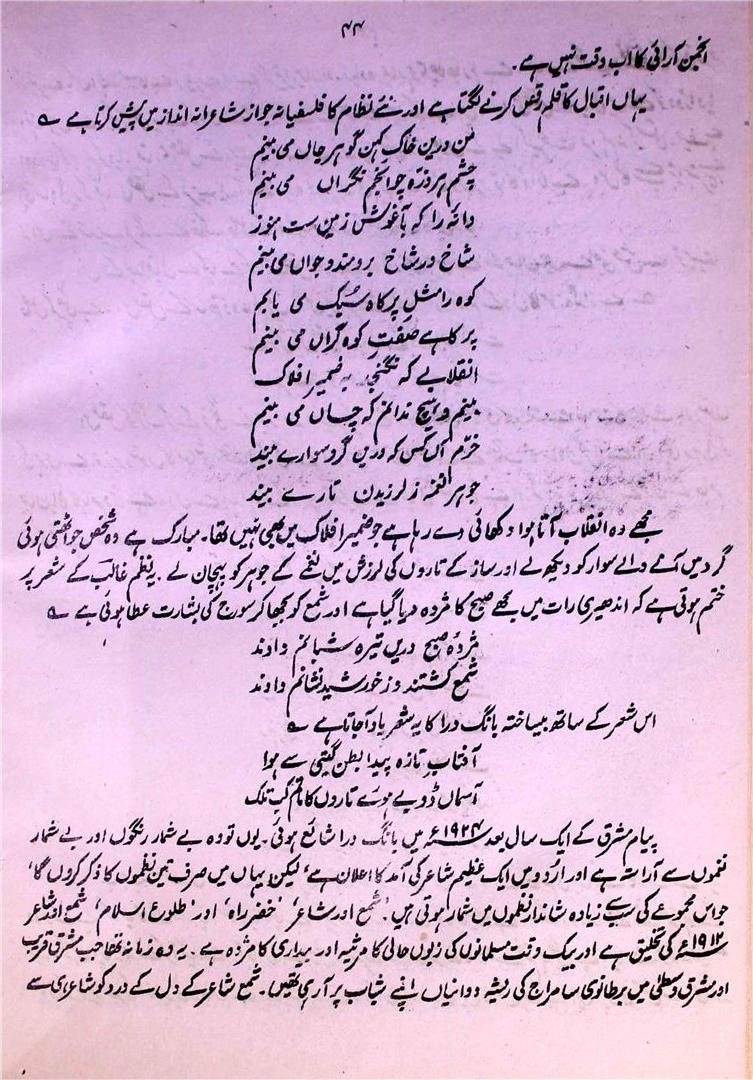 ۴۴
انجمن آرائی کا اب وقت نہیں ہے۔
یہاں اقبال کا قلم رقص کرنے لگتا ہے اور نئے نظام کا فلسفیانہ جواز شاعرانہ انداز میں پیش کرتا ہے ؎
من درین خاک کہن گوہر جاں می بینم
چشم ہر ذرہ چو انجم نگراں می بینم
دانہ را کہ بآغوش زمین ست ہنوز
شاخ در شاخ برومند و جواں می بینم
کوہ را مثلِ پرکاہ سُبک می یابم
پرکاہے صفتِ کوہ گراں می بینم
انقلابے کہ نگنجد بہ ضمیر افلاک
بینم و ہیچ ندانم کہ چساں می بینم
خرّم آں کس کہ دریں گرد سوارے بیند
جوہر نغمہ ز لرزیدن تارے بیند
مجھے وہ انقلاب آتا ہوا دکھائی دے رہا ہے جو ضمیر افلاک میں بھی نہیں تھا۔ مبارک ہے وہ شخص جو اٹھتی ہوئی
گرد میں آنے والے سوار کو دیکھ لے اور ساز کے تاروں کی لرزش میں نغمے کے جوہر کو پہچان لے۔ یہ نظم غالب کے شعر پر
ختم ہوتی ہے کہ اندھیری رات میں مجھے صبح کا مژدہ دیا گیا ہے اور شمع کو بجھا کر سورج کی بشارت عطا ہوئی ہے ؎
مژدۂ صبح دریں تیرہ شبانم دادند
شمع کشتند و ز خورشید نشانم دادند
اس شعر کے ساتھ بیساختہ بانگ درا کا یہ شعر یاد آجاتا ہے ؎
آفتاب تازہ پیدا بطن گیتی سے ہوا
آسماں ڈوبے ہوئے تاروں کا ماتم کب تلک
پیام مشرق کے ایک سال بعد ۱۹۲۴ء میں بانگ درا شائع ہوئی۔ یوں تو وہ بے شمار رنگوں اور بے شمار
نغموں سے آراستہ ہے اور اردو میں ایک عظیم شاعر کی آمد کا اعلان ہے، لیکن یہاں میں صرف تین نظموں کا ذکر کروں گا،
جو اس مجموعے کی سب سے زیادہ شاندار نظموں میں شمار ہوتی ہیں۔ 'شمع اور شاعر' 'خضر راہ' اور 'طلوع اسلام' شمع اور شاعر
۱۹۱۲ء کی تخلیق ہے اور بیک وقت مسلمانوں کی زبوں حالی کا مرثیہ اور بیداری کا مژدہ ہے۔ یہ وہ زمانہ تھا جب مشرق قریب
اور مشرق وسطیٰ میں برطانوی سامراج کی ریشہ دوانیاں اپنے شباب پر آ رہی تھیں۔ شمع شاعر کے دل کے درد کو شاعری سے